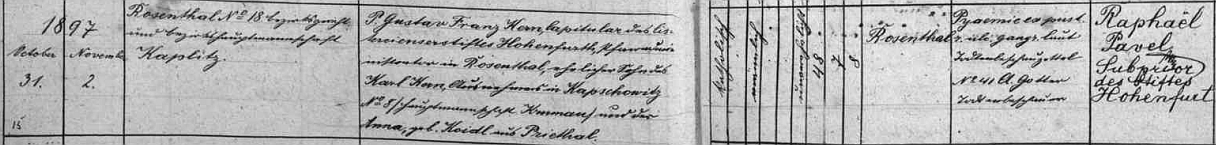 1897
October
31.
November
2.
15
Rosenthal No 18 Bezirksgericht
und Bezirkshauptmannschaft
Kaplitz.
P. Gustav Franz Kern, Capitular des Cis-
tercienserstiftes Hohenfurth, Pfarradmi-
nistrator in Rosenthal, ehelicher Sohn des
Karl Kern, Ausnehmers in
No 8 Hauptmannschaft Krummau und der
Anna, geb. Koidl aus Priethal.
katholisch
männlich
48
7
8
Rosenthal
Pyaemie ex pust.
laut
Todtenbeschauzettel
No 41 A. Gotter
Todtenbeschauer
Raphaël
Pavel,
Subprior
des Stiftes
Hohenfurt